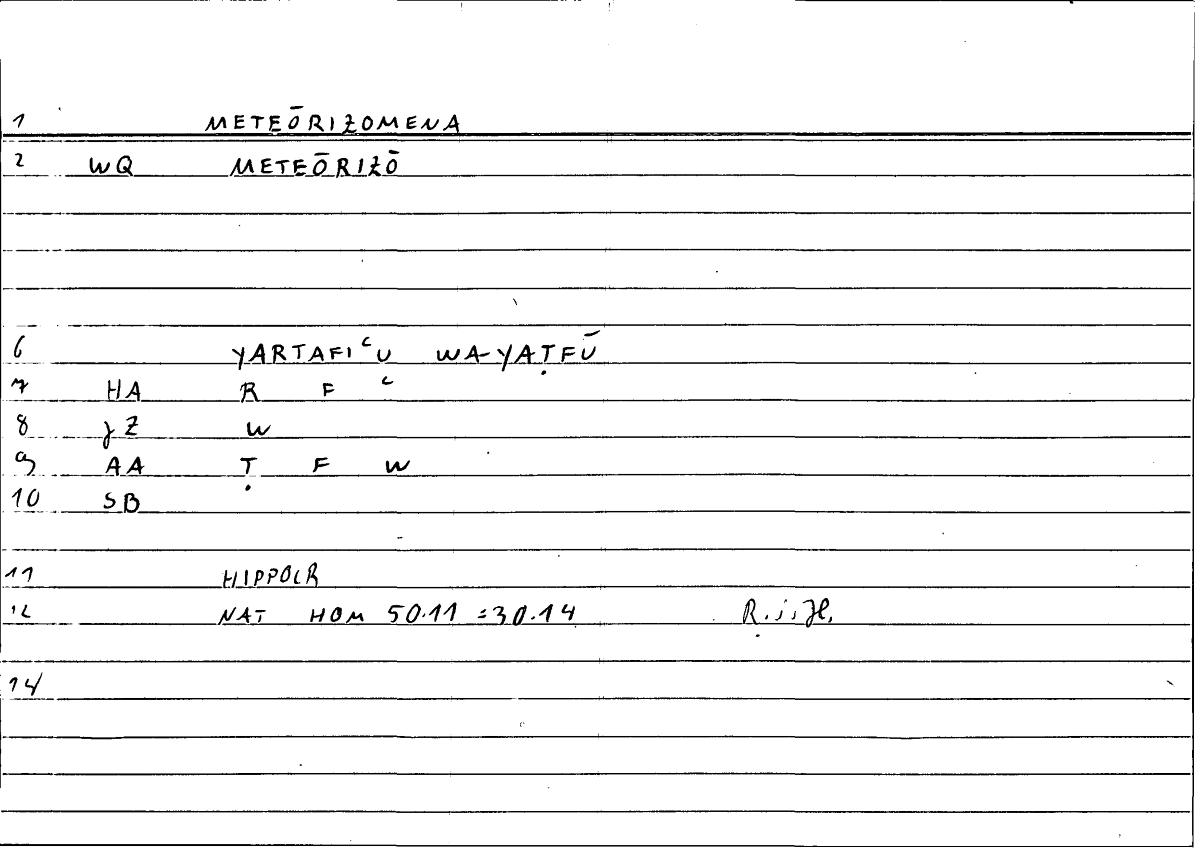 1 METEŌRIZOMENA
2 WQ METEŌRIZŌ
6 YARTAFIʿU WA-YAṬFŪ
7 HA R F ʿ
8 JZ W
9 AA Ṭ F W
10 SB
11 HIPPOCR
12 NAT HOM 50.11 =30.14
14